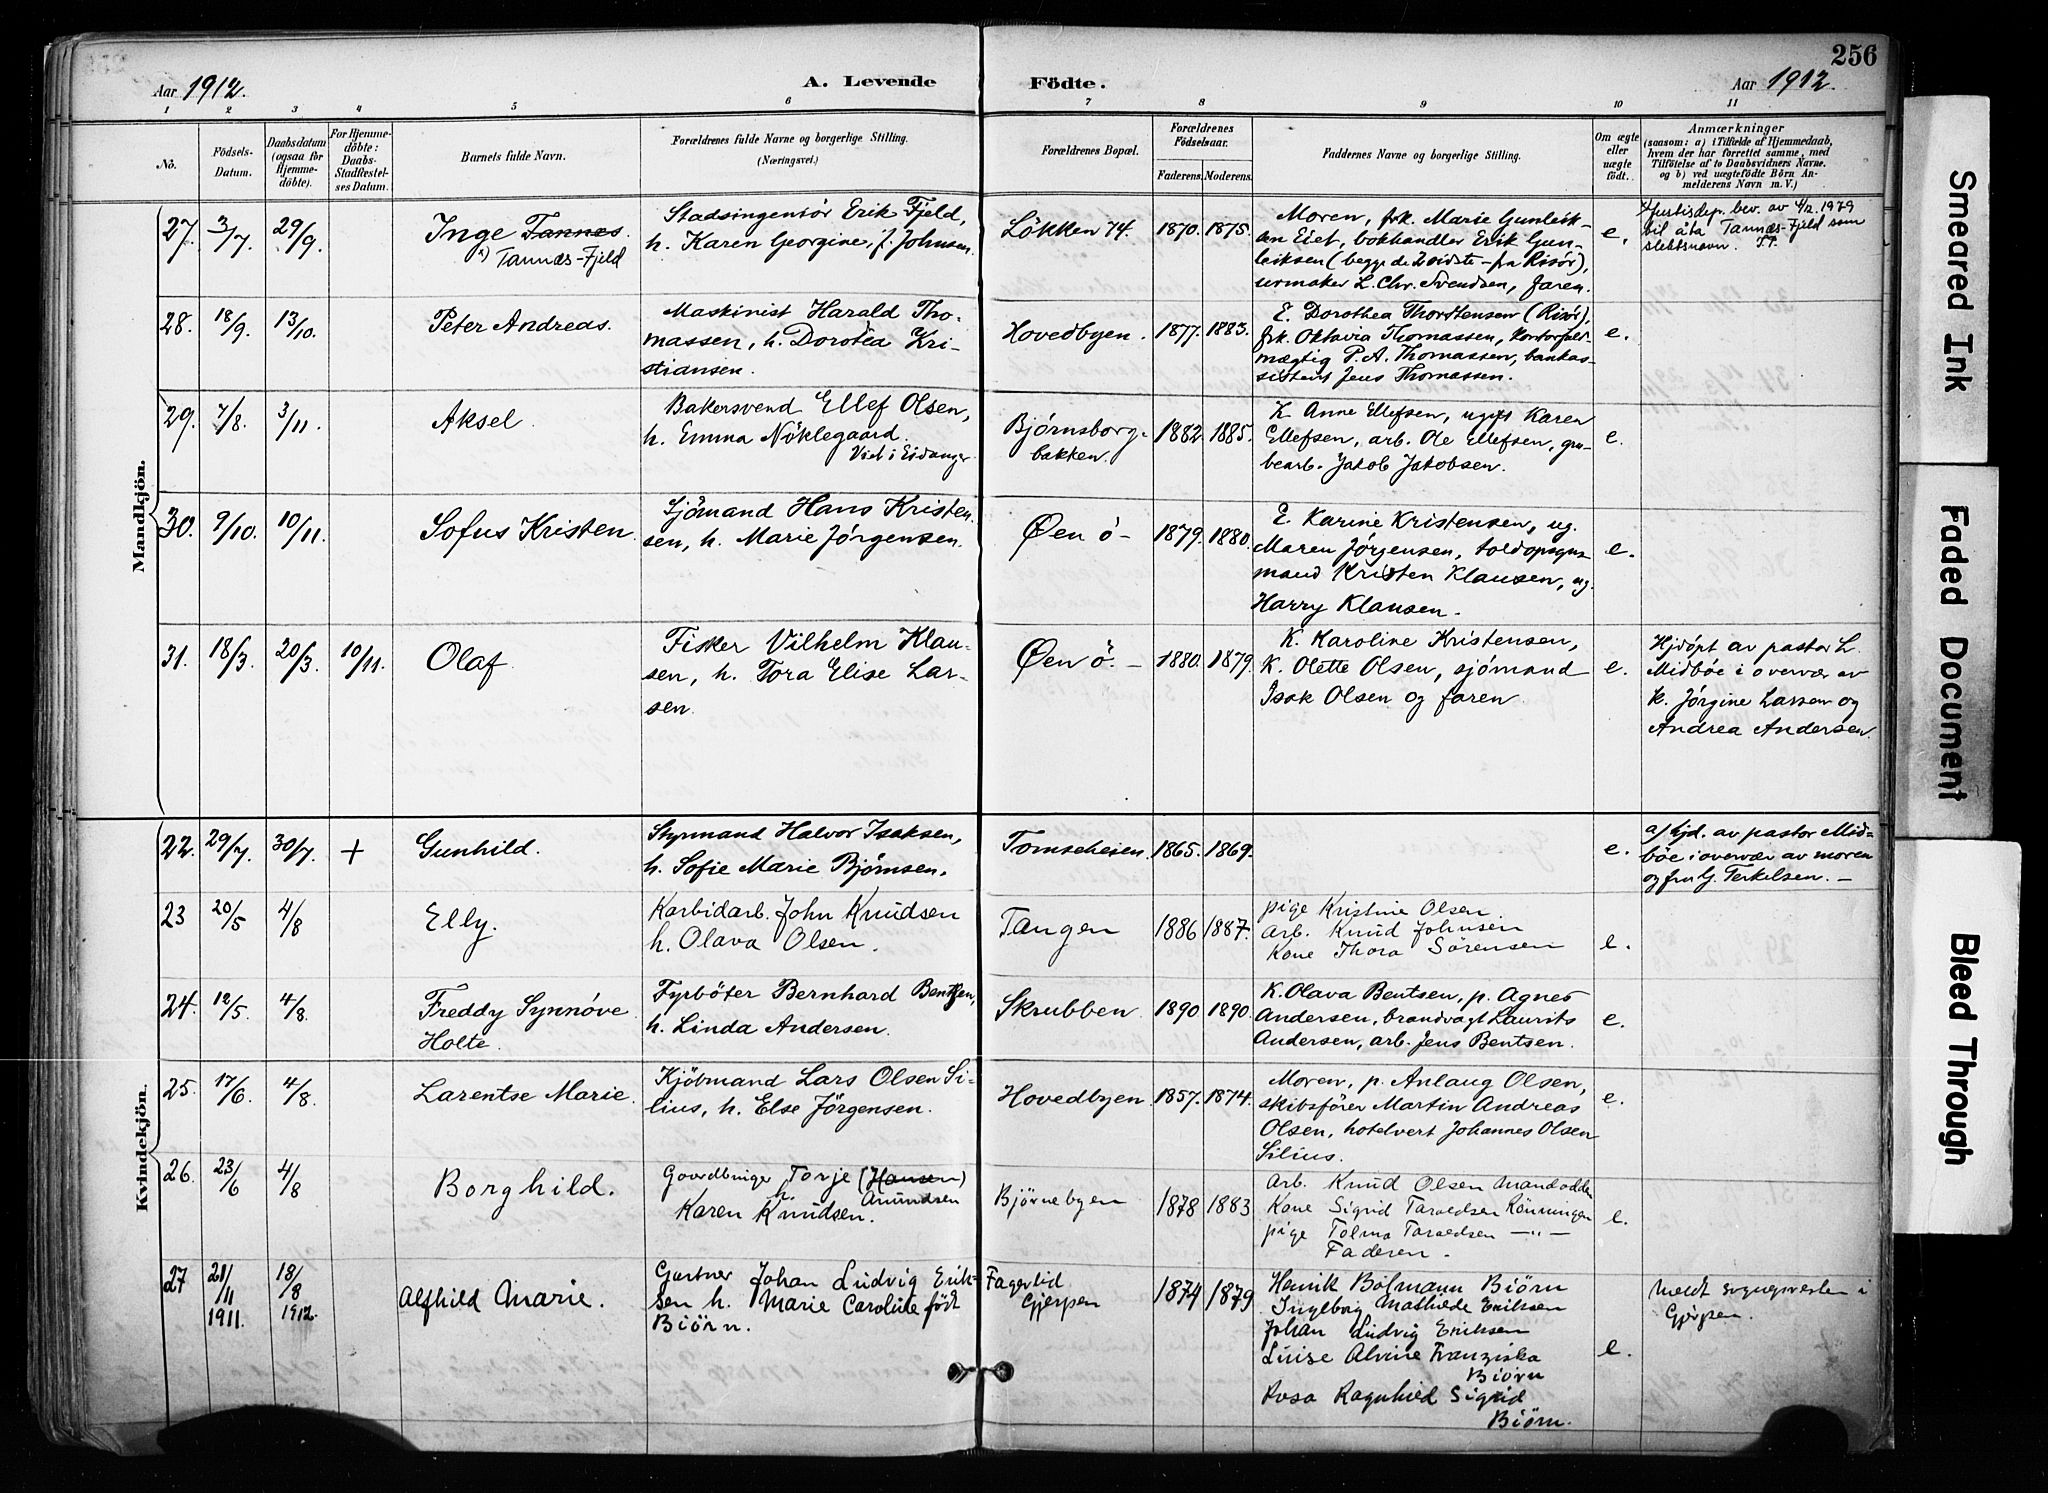 256
Aar 1912. A. Levende Födte. Aar 1912.
1 2 3 4 5 6 7 8 9 10 11
No.
Födsels-
Datum.
Daabsdatum
(ogsaa for
Hjemme-
döbte).
For Hjemme-
döbte:
Daabs-
Stadfæstel-
ses Datum.
Barnets fulde Navn.
Forældrenes fulde Navne og borgerlige Stilling.
(Næringsvei.)
Forældrenes Bopæl.
Forældrenes
Födselsaar.
Faderens. Moderens.
Faddernes Navne og borgerlige Stilling.
Om ægte
eller
uægte
födt.
Anmærkninger
(saasom: a) i Tilfælde af Hjemmedaab,
hvem der har forrettet samme, med
Tilföielse af to Daabsvidners Navne.
og b) ved uægtefödte Börn An-
melderens Navn m. V.)
Mandkjön.
27. 3/7. 29/9.
Inge Tannes.
x) Tannæs-Fjeld
Stadsingeniör Erik Fjeld,
h. Karen Georgine, f. Johnsen.
Lökken 74. 1870. 1875.
Moren, frk. Marie Gunleik-
sen Eiet, bokhandler Erik Gun-
leiksen (begge de 2 sidste - fra Risör),
urmaker L. Chr. Svendsen, faren.
e.
x) Justisdep. bev. av 4/12. 1979
til å ta Tannæs-Fjeld som
slektsnavn. TT.
28. 18/9. 13/10.
Peter Andreas.
Maskinist Harald Tho-
massen, h. Dorotea Kri-
stiansen.
Hovedbyen. 1877. 1883.
E. Dorothea Thorstensen (Risör),
frk. Oktavia Thomassen, kontorfuld-
mægtig P. A. Thomassen, bankas-
sistent Jens Thomassen.
e.
29. 7/8. 3/11.
Aksel.
Bakersvend Ellef Olsen,
h. Emma Nöklegaard.
Viet i Eidanger
Bjørnsborg-
bakken. 1882 1885.
K. Anne Ellefsen, ugift Karen
Ellefsen, arb. Ole Ellefsen, gru-
bearb. Jakob Jakobsen.
e.
30. 9/10. 10/11.
Sofus Kristen.
Sjömand Hans Kristen-
sen, h. Marie Jørgensen.
Øen ö- 1879. 1880.
E. Karine Kristensen, ug.
Maren Jørgensen, toldopsyns-
mand Kristen Klausen, ug.
Harry Klausen.
e.
31. 18/3. 20/3. 10/11.
Olaf.
Fisker Vilhelm Klau-
sen, h. Tora Elise Lar-
sen.
Øen ö. - 1880. 1879.
K. Karoline Kristensen,
K. Olette Olsen, sjómand
Isak Olsen og faren.
e.
Hjdöpt av pastor L.
Midböe i overvær av
k. Jørgine Larsen og
Andrea Andersen.
Kvindekjön.
22. 29/7. 30/7. +
Gunhild.
Styrmand Halvor Isaksen,
h. Sofie Marie Bjørnsen.
Tomseheien. 1865. 1869.
e.
a/ hjd. av pastor Mid-
böe i overvær av moren
og fru G. Terkelsen. -
23 20/5 4/8
Elly.
Karbidarb. John Knudsen
h. Olava Olsen.
Tangen 1886 1887.
pige Kristine Olsen.
arb. Knud Johnsen
Kone Thora Sörensen
e.
24. 12/5. 4/8.
Freddy Synnöve
Holte.
Fyrböter Bernhard Bentsen,
h. Linda Andersen.
Skrubben. 1890 1890.
K. Olava Bentsen, p. Agnes
Andersen, brandvagt Laurits
Andersen, arb. Jens Bentsen.
e.
25. 17/6. 4/8.
Larentse Marie.
Kjöbmand Lars Olsen Si-
lius, h. Else Jörgensen.
Hovedbyen. 1857. 1874.
Moren, p. Anlaug Olsen,
skibsförer Martin Andreas
Olsen, hotelvert Johannes Olsen
Silius.
e.
26. 23/6 4/8
Borghild.
Gaardbruger Torje (Hansen)
Anundsen
h. Karen Knudsen.
Bjørnebyen 1878 1883
Arb. Knud Olsen Strandodden
Kone Sigrid Taraldsen Rönningen
pige Tolma Taraldsen -"-
Faderen.
e.
27 21/11 1911. 18/8 1912.
Alfhild Marie.
Gartner Johan Ludvig Erik-
sen h. Marie Caroline födt
Biörn.
Fagerlid
Gjerpen 1874 1879
Henrik Bolmann Biörn
Ingeborg Mathilde Eriksen
Johan Ludvig Eriksen
Luise Alvine Franziska
Biörn
Rosa Ragnhild Sigrid
Biörn.
e.
Meldt sognepresten i
Gjerpen.
Smeared Ink
Faded Document
Bleed Through